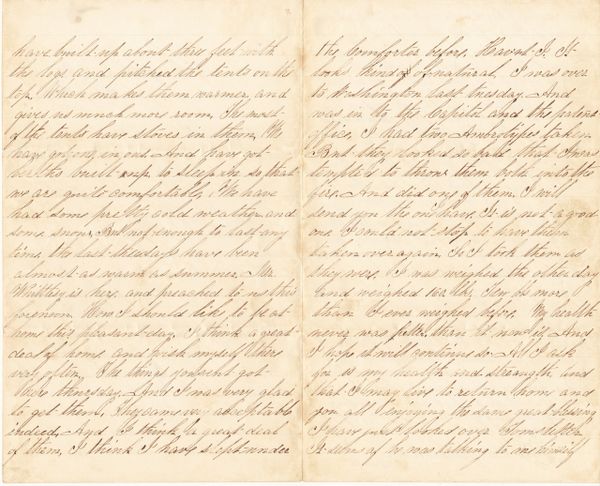 have built up about three feet with
the logs and pitched the tents on the
top. Which makes them warmer and
gives us much more room. The most
of the tents have stoves in them. We
have got one in ours. And have got
berths built up to sleep in so that
we are quite comfortable. We have
had some pretty cold weather and
some snow. But not enough to last any
time, the last three days have been
almost as warm as summer. Mr
Whittlesy is here, and preached to us this
forenoon. How I should like to be at
home this pleasant day. I think a great
deal of home and wish myself there
very often. The things you sent got
here thursday. And I was very glad
to get them. They came very acceptable
indeed. And I think a great deal
of them, I think I have slept under
the Comforter before. Havnt I. It
looks kind of natural, I was over
to Washington last tuesday. And
was in to the Capitol and the patent
office, I had two Ambrotypes taken
But they looked so bad that I was
tempted to throw them both into the
fire. And did one of them. I will
send you the one I have. It is not a good
one. I could not stop to have them
taken over again. So I took them as
they were. I was weighed the other day
and weighed 162 lbs, more
than I ever weighed before. My health
never was better than it now is, And
I hope it will continue so. All I ask
for is my health and strength and
that I may live to return home and
you all enjoying the same great blessing
I have just looked over letter
It seems as he was talking to me himself